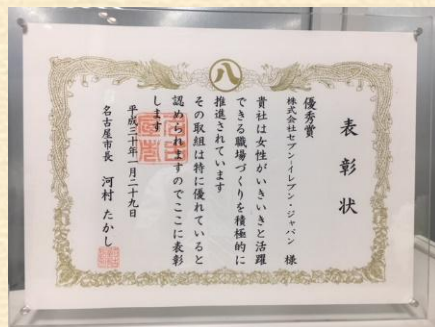 八
表彰状
優秀賞
株式会社セブン‐イレブン・ジャパン 様
貴社は女性がいきいきと活躍
できる職場づくりを積極的に
推進されています
その取組は特に優れていると
認められますのでここに表彰
します
平成三十年一月二十九日
名古屋市長 河村 たかし